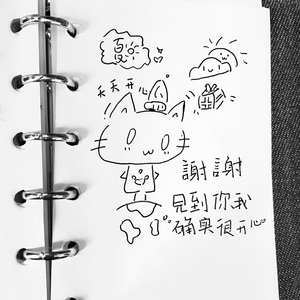 夏
天天开心
謝謝
見到你我
确实很开心